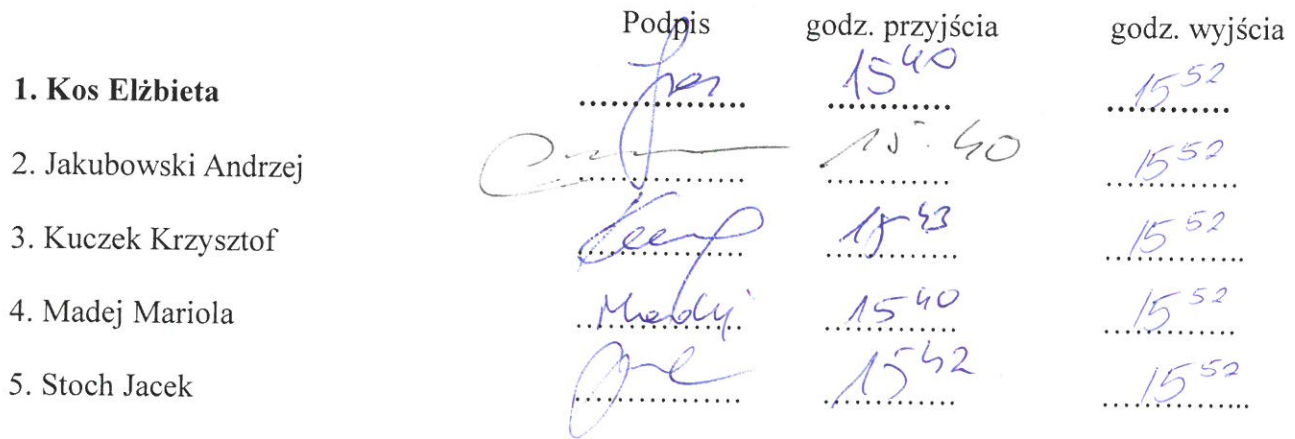 Podpis godz. przyjścia godz. wyjścia
1. Kos Elżbieta 15 40 15 52
2. Jakubowski Andrzej 15.40 15 52
3. Kuczek Krzysztof 15 43 15 52
4. Madej Mariola Madej 15 40 15 52
5. Stoch Jacek 15 42 15 52